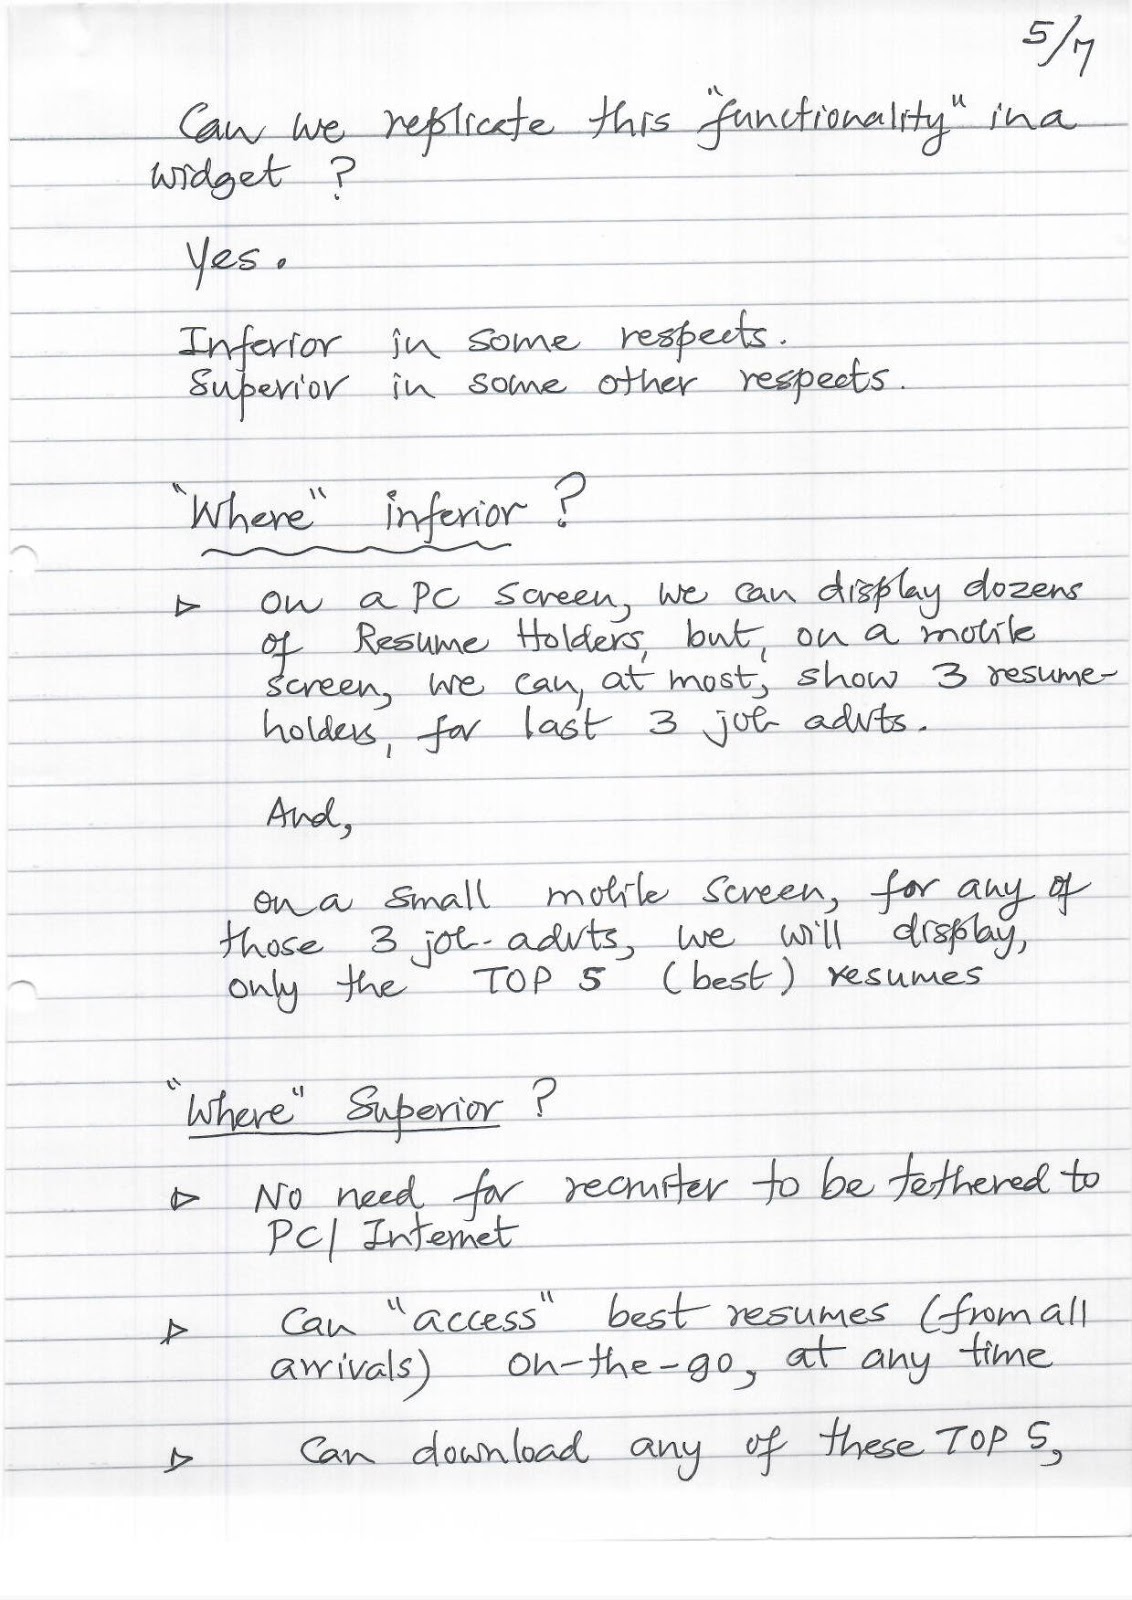 5/7
Can we replicate this "functionality" in a
widget ?
Yes.
Inferior in some respects.
Superior in some other respects.
"Where" inferior ?
▷ On a PC screen, we can display dozens
of Resume Holders, but, on a mobile
screen, we can, at most, show 3 resume-
holders, for last 3 job advts.
And,
on a small mobile screen, for any of
those 3 job-advts, we will display,
only the TOP 5 (best) resumes
"Where" Superior ?
▷ No need for recruiter to be tethered to
PC/ Internet
▷ Can "access" best resumes (from all
arrivals) on-the-go, at any time
▷ Can download any of these TOP 5,